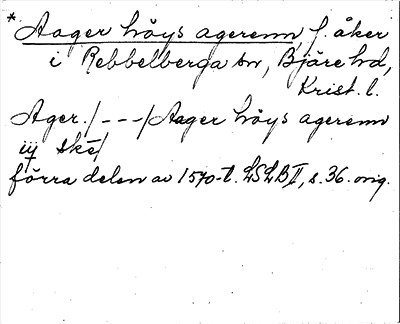 * Aager höys agerenn, f. åker
i Rebbelberga sn, Bjäre hd,
Krist. l.
Ager. / - - - / Aager höys agerenn
iij skē/
förra delen av 1570-t. LSLB II, s. 36. orig.